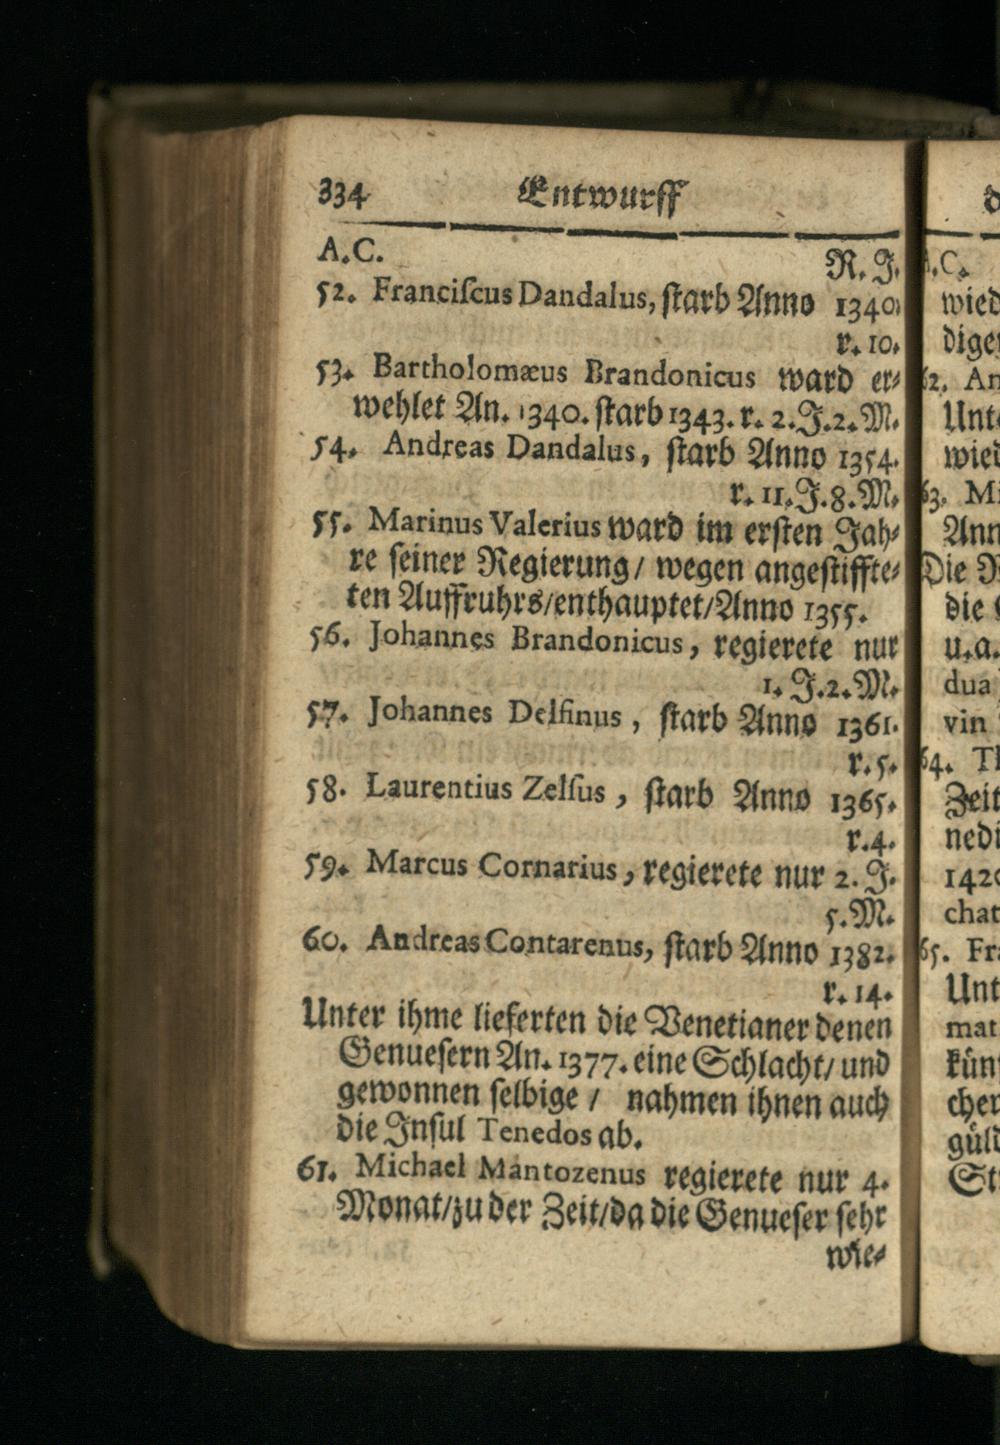 334 Entwurff
A.C. R. J.
52. Franciſcus Dandalus, ſtarb Anno 1340.
r. 10.
53. Bartholomæus Brandonicus ward er⸗
wehlet An. 1340. ſtarb 1343. r. 2. J. 2. M.
54. Andreas Dandalus, ſtarb Anno 1354.
r. 11. J. 8. M.
55. Marinus Valerius ward im erſten Jah⸗
re ſeiner Regierung/ wegen angeſtiffte⸗
ten Auffruhrs/enthauptet/Anno 1355.
56. Johannes Brandonicus, regierete nur
1. J. 2. M.
57. Johannes Delfinus, ſtarb Anno 1361.
r. 5.
58. Laurentius Zelſus, ſtarb Anno 1365.
r. 4.
59. Marcus Cornarius, regierete nur 2. J.
5. M.
60. Andreas Contarenus, ſtarb Anno 1382.
r. 14.
Unter ihme lieferten die Venetianer denen
Genueſern An. 1377. eine Schlacht/ und
gewonnen ſelbige / nahmen ihnen auch
die Inſul Tenedos ab.
61. Michael Mantozenus regierete nur 4.
Monat/zu der Zeit/da die Genueſer ſehr
wie⸗
A.C.
wied
diger
62. An
Unt
wied
63. Mi
Ann
Die R
die
u.a.
dua
vin
64. Th
Zeit
nedi
142
chat
65. Fra
Unt
mat
kün
cher
güld
St